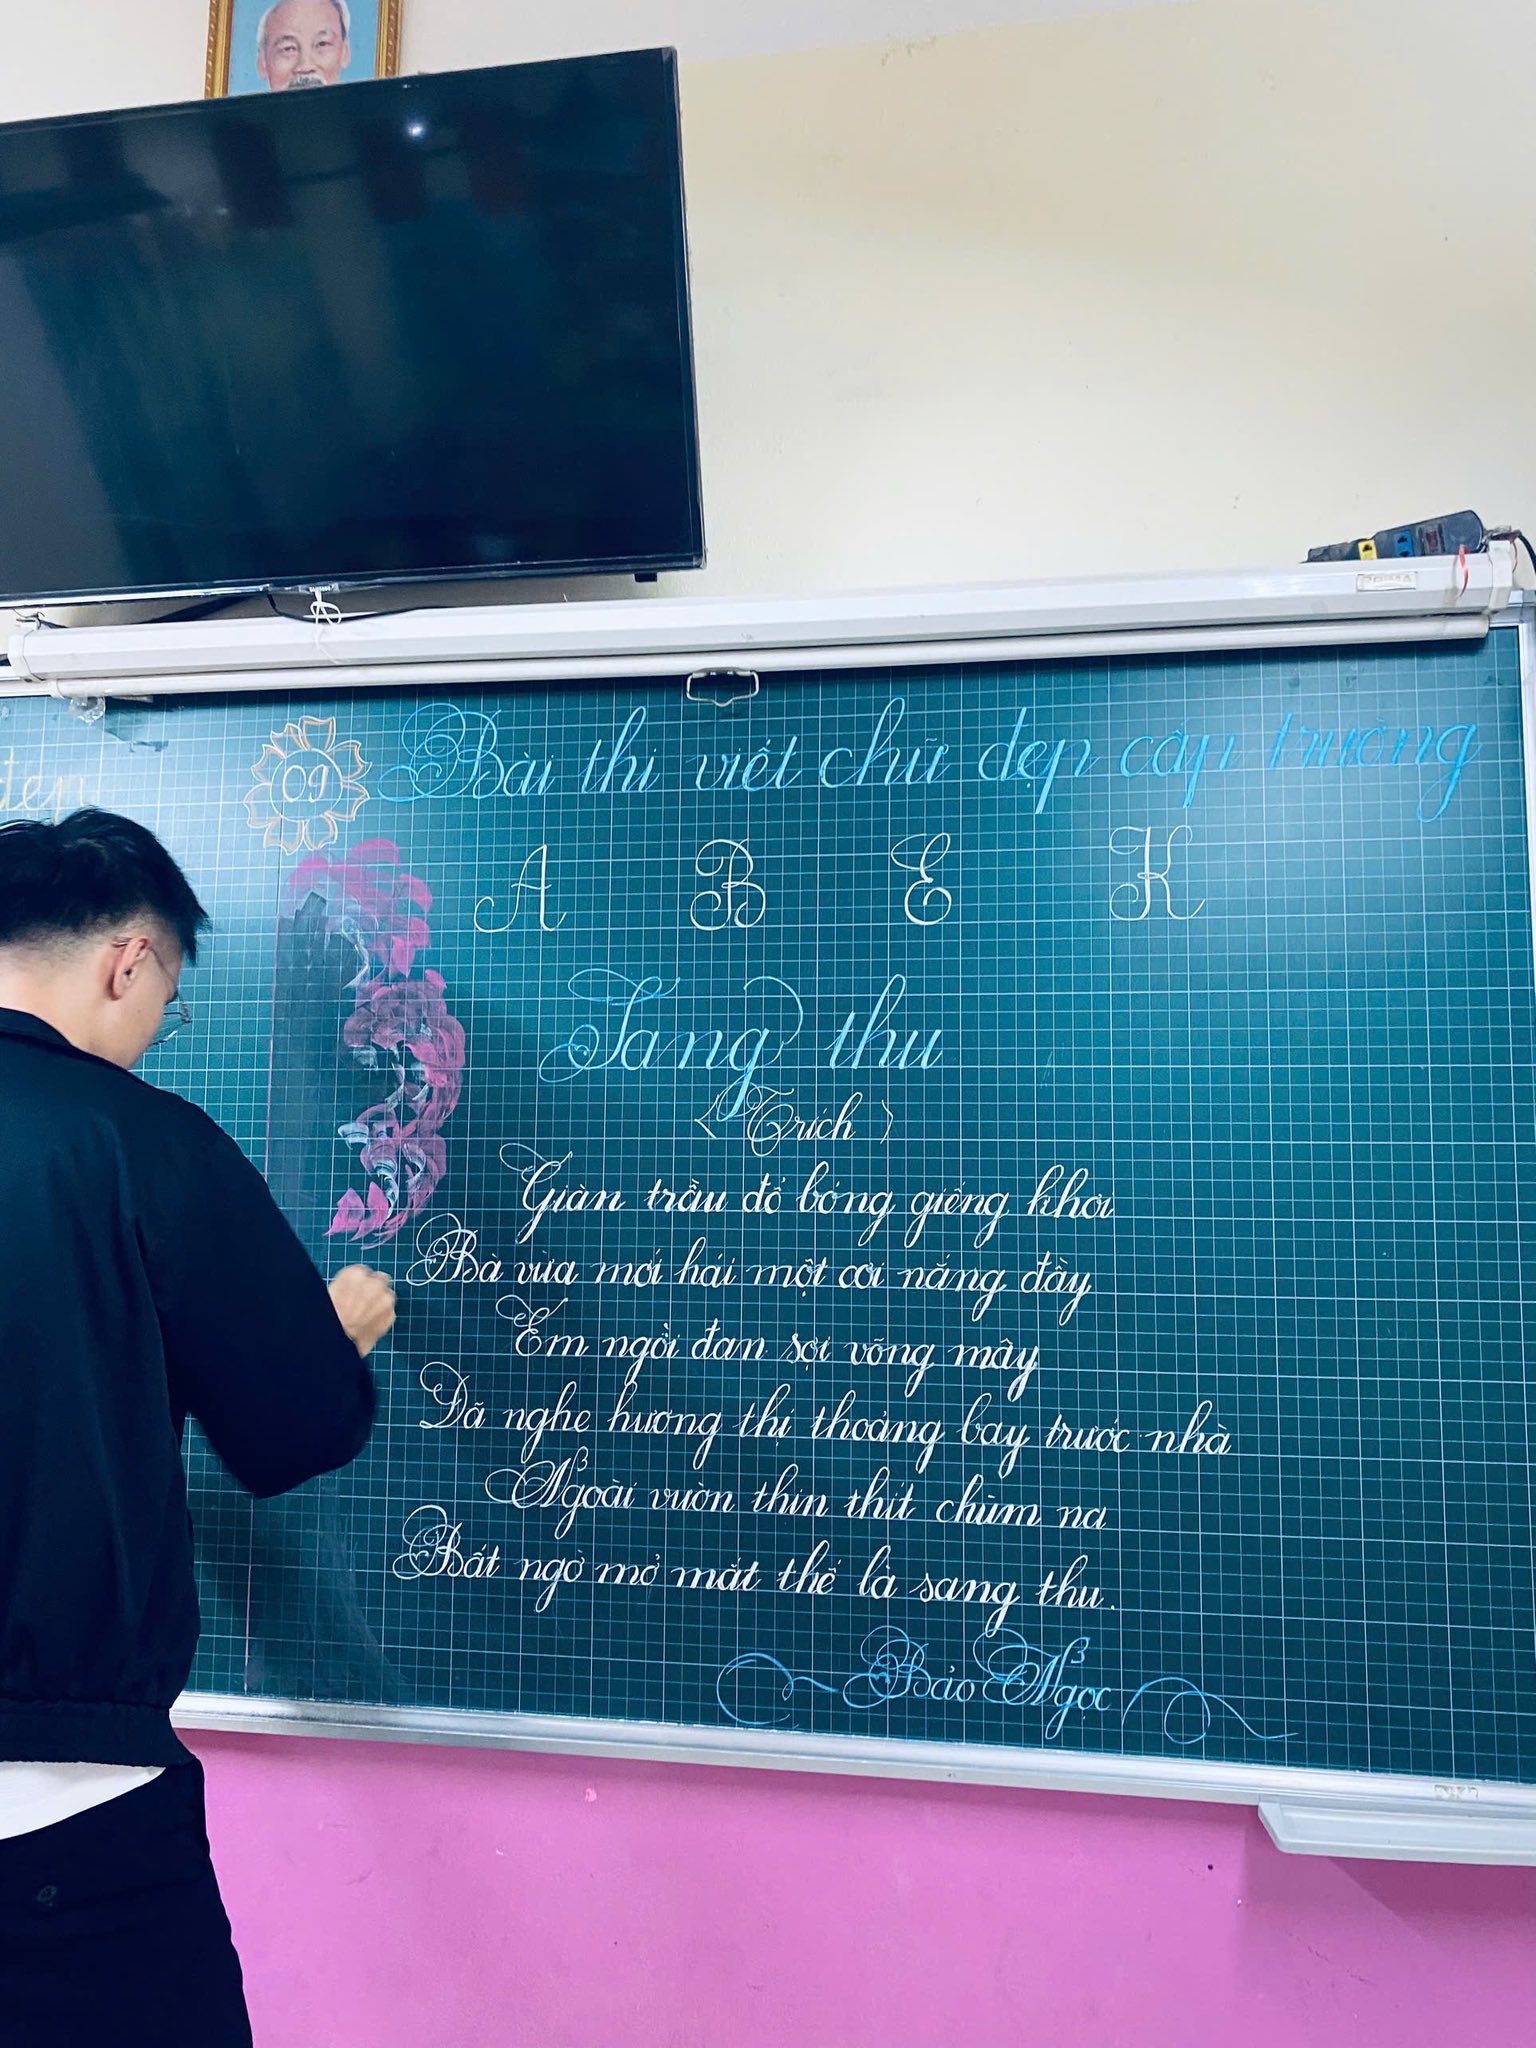 SAMSUNG
đẹp
09
Bài thi viết chữ đẹp cấp trường
A B E K
Sang thu
(Trích)
Giàn trầu đổ bóng giếng khơi
Bà vừa mới hái một cơi nắng đầy
Em ngồi đan sợi võng mây
Đã nghe hương thị thoảng bay trước nhà
Ngoài vườn thin thít chùm na
Bất ngờ mở mắt thế là sang thu.
Bảo Ngọc